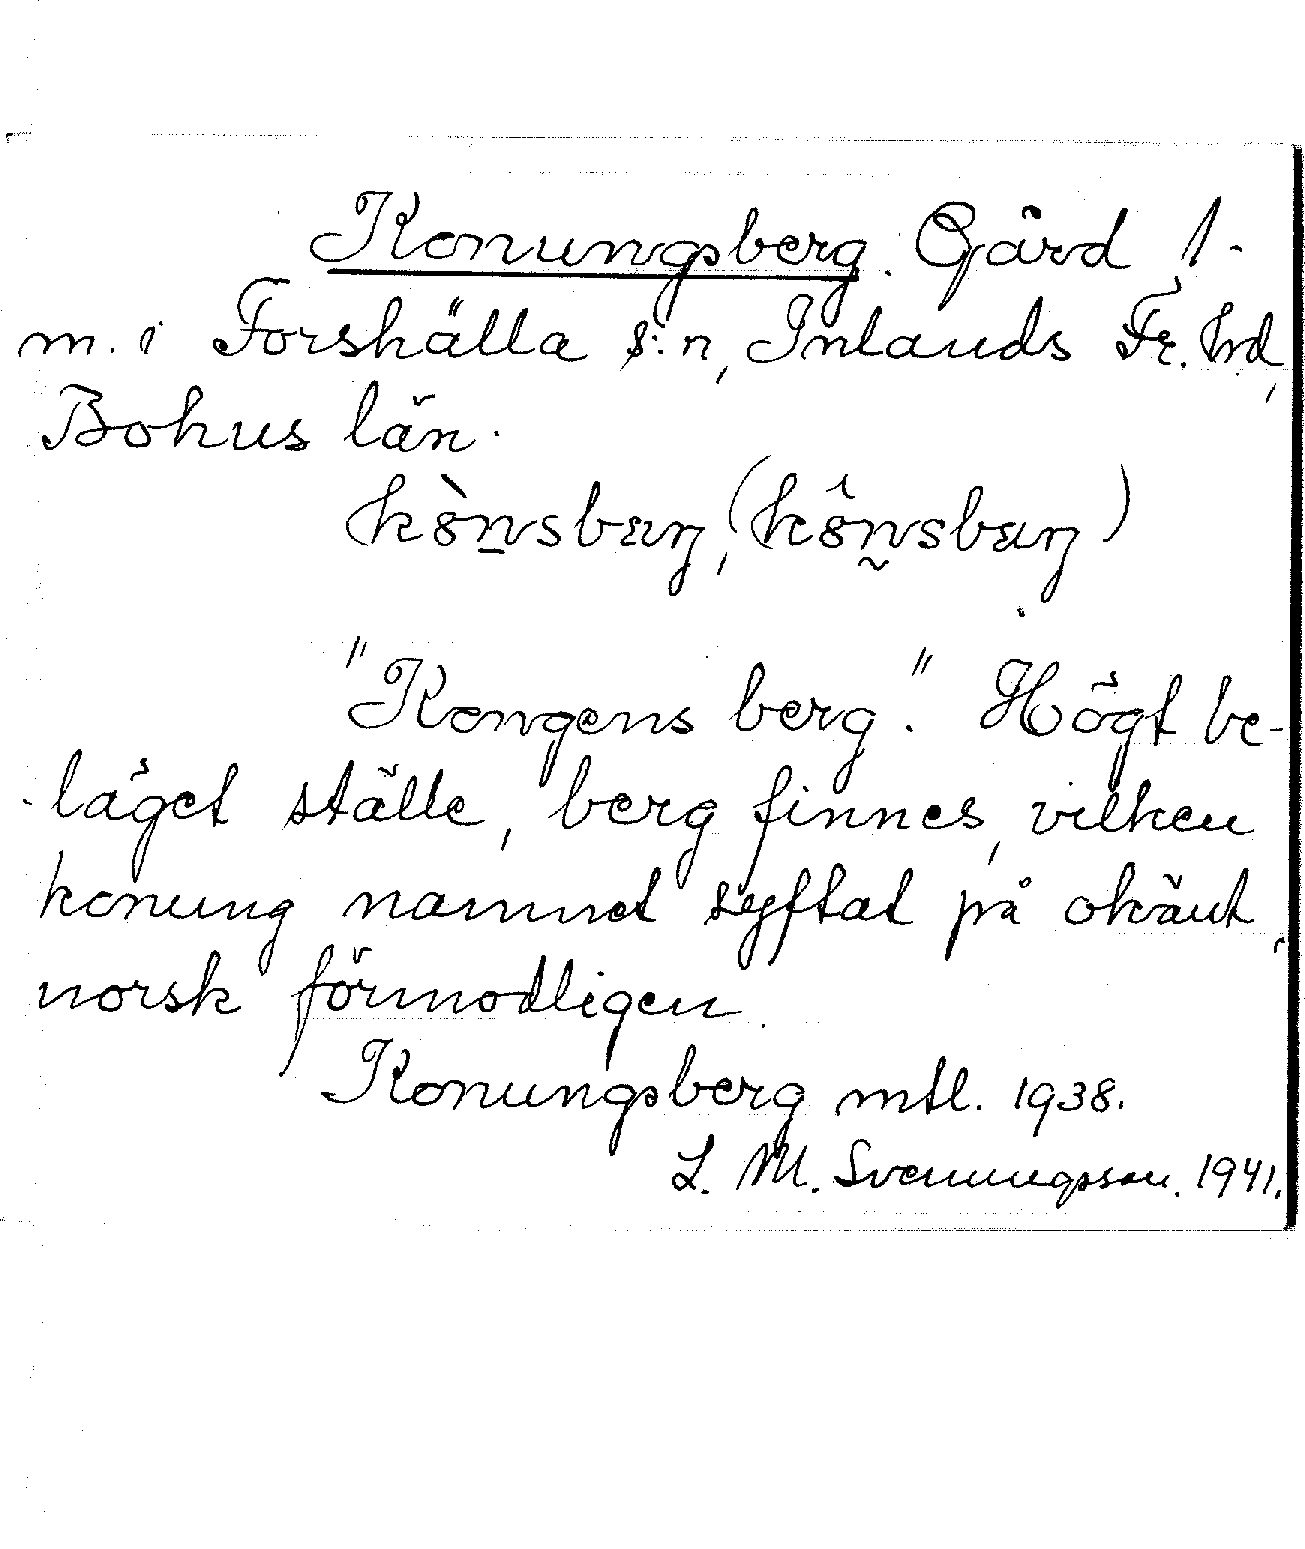 Konungsberg. Gård 1
m. i Forshälla s:n, Inlands Fr. hd,
Bohus län.
"Kongens berg." Högt be-
läget ställe, berg finnes, vilken
konung namnet syftat på okänt,
norsk förmodligen.
Konungsberg mtl. 1938.
L. M. Svenungsson. 1941.